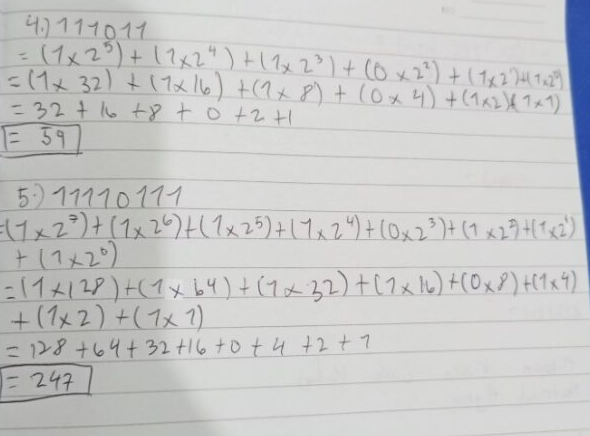 4.) 111011
= (1x2⁵) + (1x2⁴) + (1x2³) + (0x2²) + (1x2¹)+(1x2⁰)
= (1x 32) + (1x16) + (1x 8) + (0x 4) + (1x2)+(1x1)
= 32 + 16 +8 + 0 +2 +1
= 59
5.) 11110111
=(1x2⁷)+(1x2⁶)+(1x2⁵)+(1x2⁴)+(0x2³)+(1x2²)+(1x2¹)
+ (1x2⁰)
=(1x128)+(1x64)+(1x32)+(1x16)+(0x8)+(1x4)
+ (1x2) + (1x1)
= 128 +64+ 32+16 +0+ 4 +2 + 1
= 247